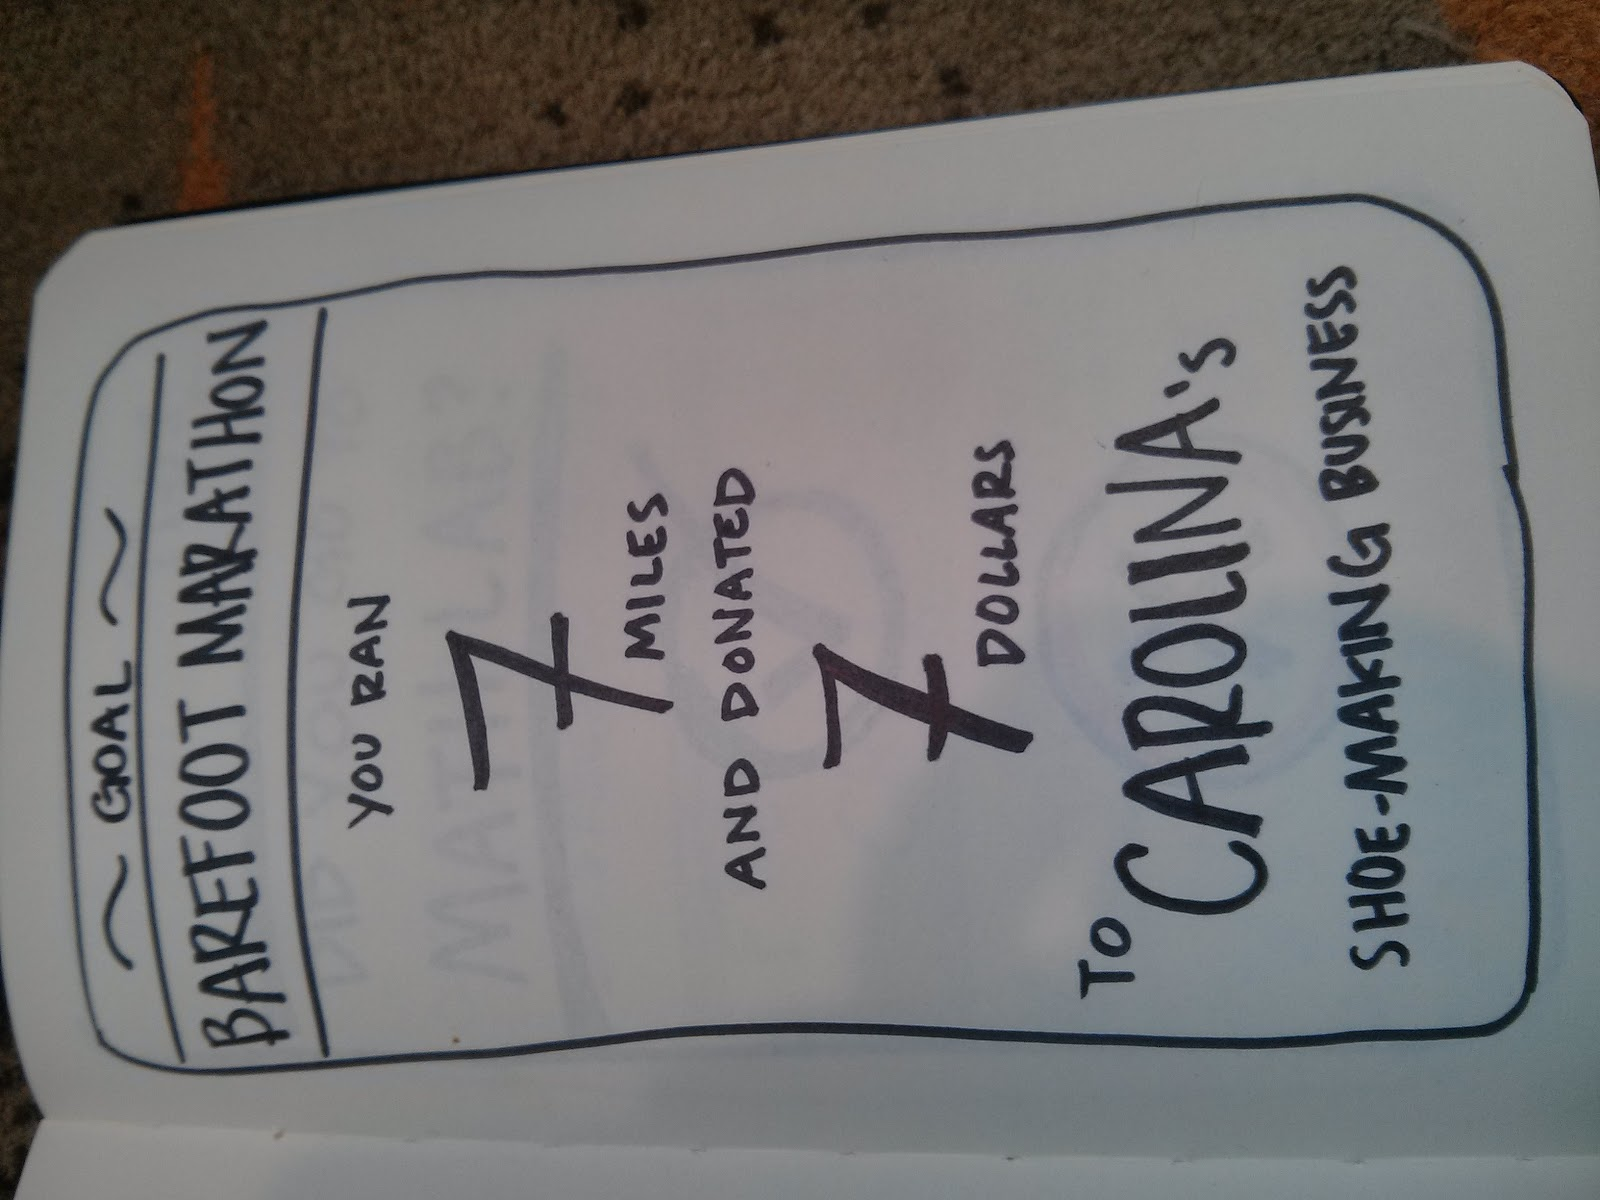 ~ GOAL ~
BAREFOOT MARATHON
YOU RAN
7
MILES
AND DONATED
7
DOLLARS
TO CAROLINA'S
SHOE-MAKING BUSINESS